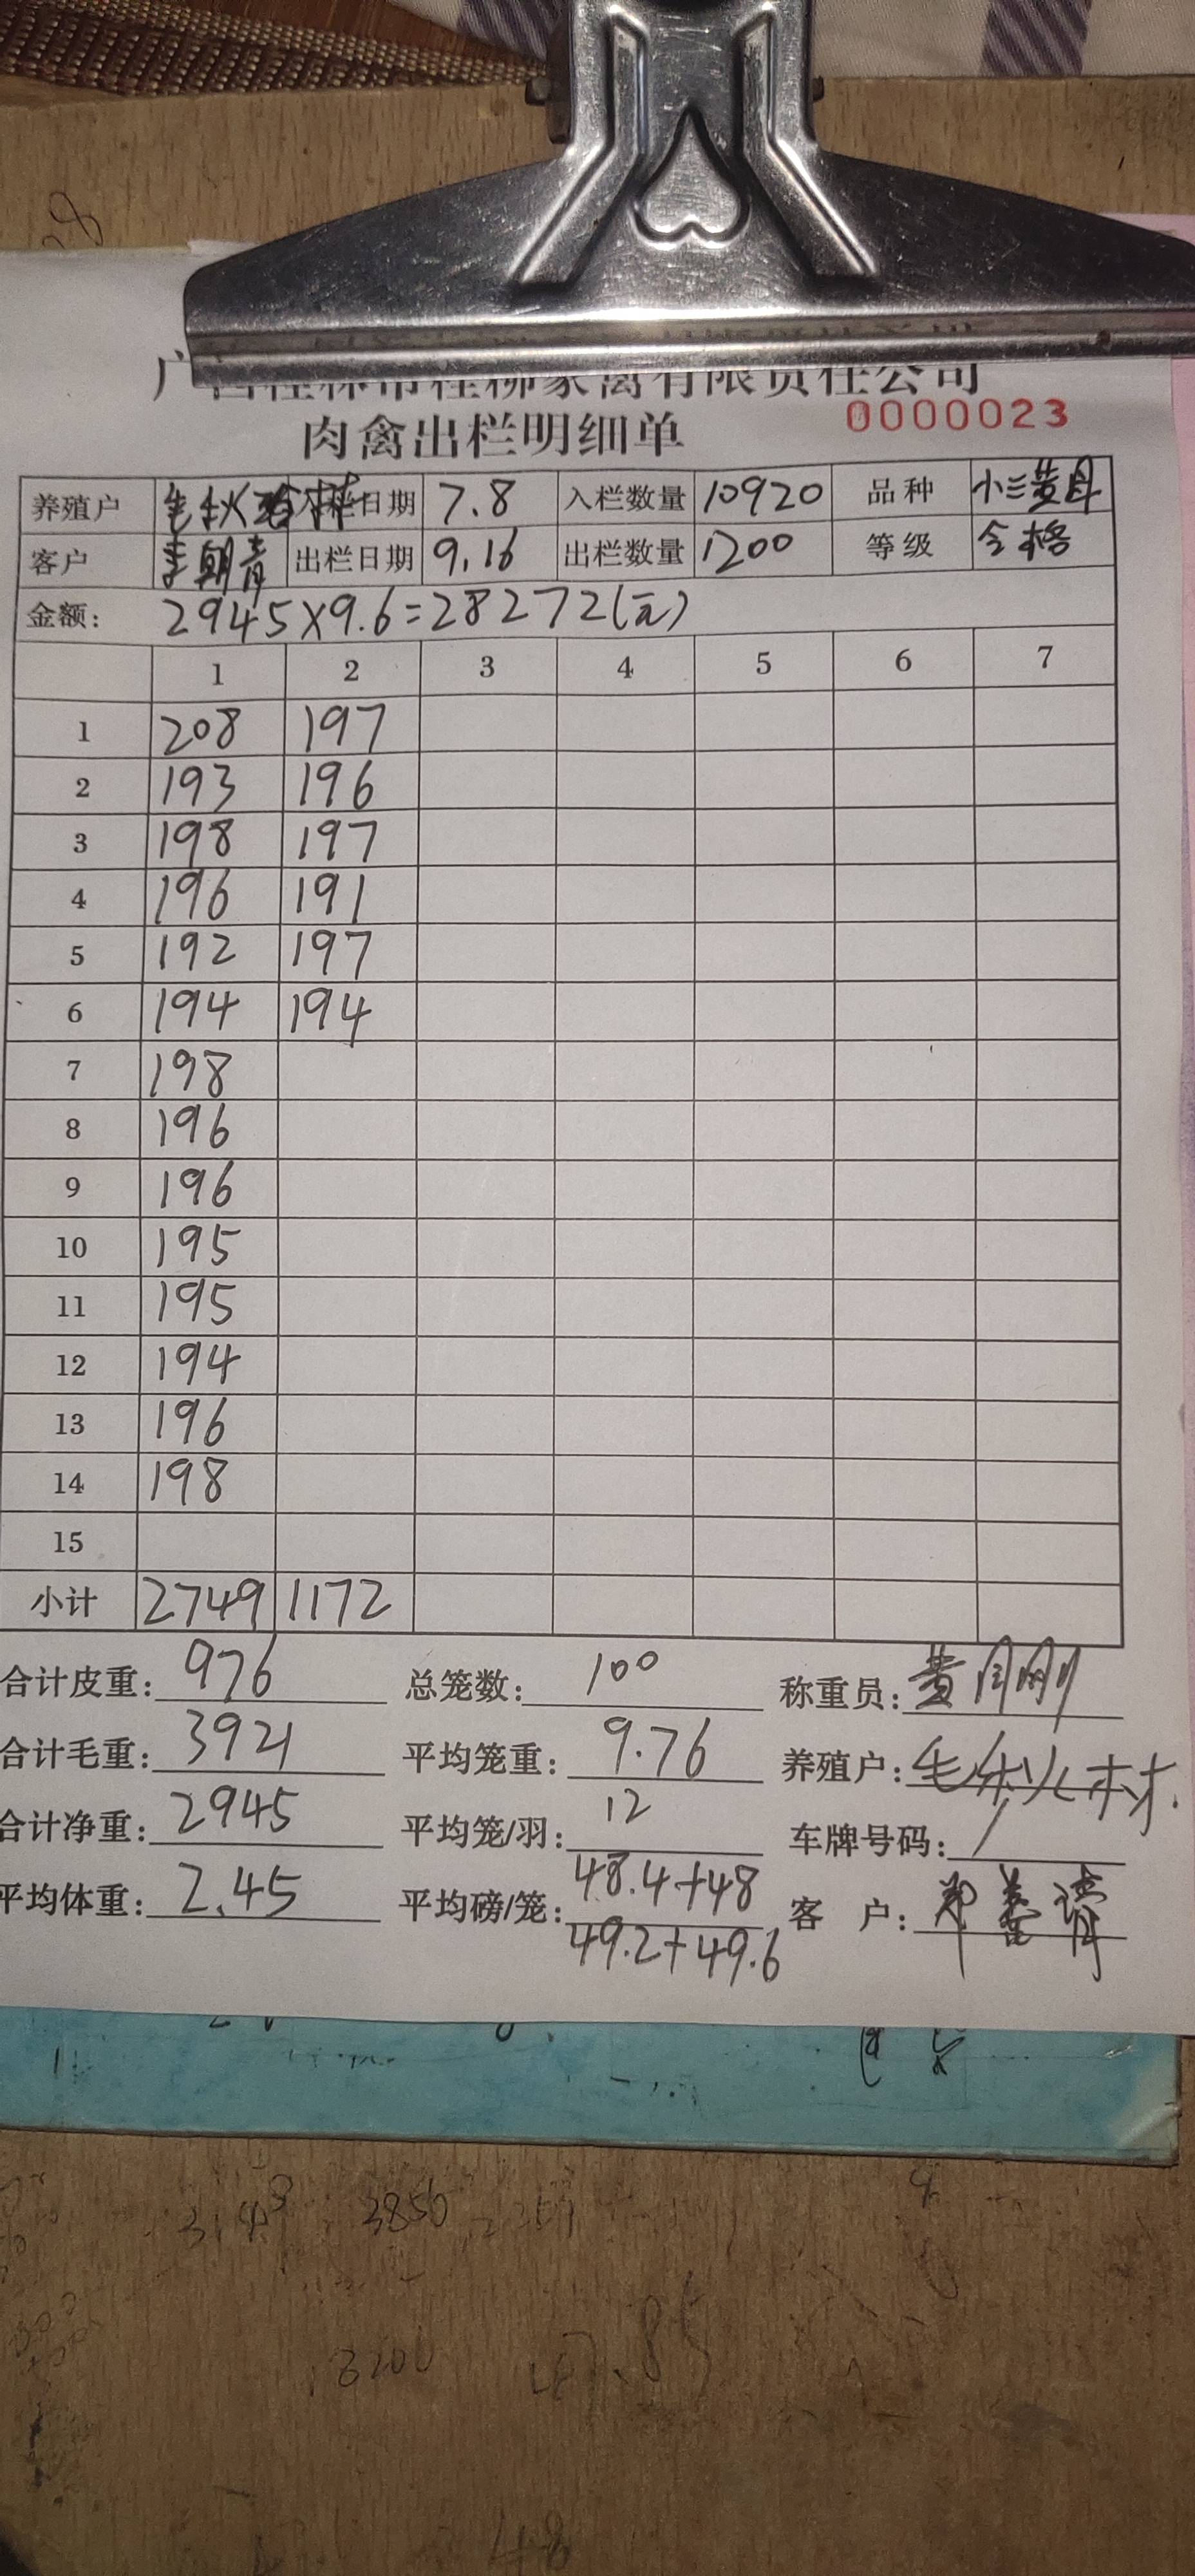 广西桂林市桂柳家禽有限责任公司
肉禽出栏明细单 0000023
养殖户 毛秋 入栏日期 7.8 入栏数量 10920 品种 小三黄母
客户 李朝青 出栏日期 9.16 出栏数量 1200 等级 合格
金额: 2945×9.6=28272(元)
1 2 3 4 5 6 7
1 208 197
2 193 196
3 198 197
4 196 191
5 192 197
6 194 194
7 198
8 196
9 196
10 195
11 195
12 194
13 196
14 198
15
小计 2749 1172
合计皮重: 976 总笼数: 100 称重员: 黄刚
合计毛重: 3921 平均笼重: 9.76 养殖户: 毛秋林
合计净重: 2945 平均笼/羽: 12 车牌号码: /
平均体重: 2.45 平均磅/笼: 48.4+48 客 户:
49.2+49.6
3850
3200
47.85
48